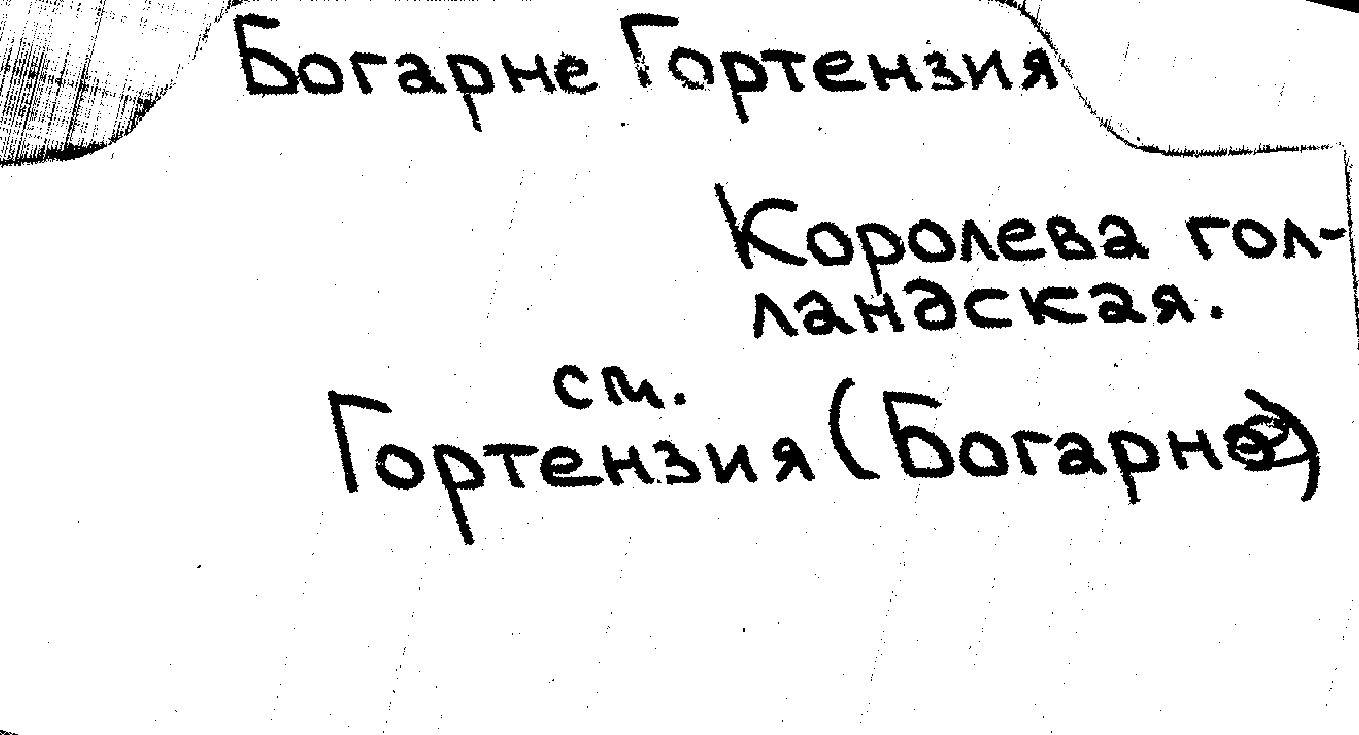 Богарне Гортензия
Королева гол-
ландская.
см.
Гортензия (Богарне)